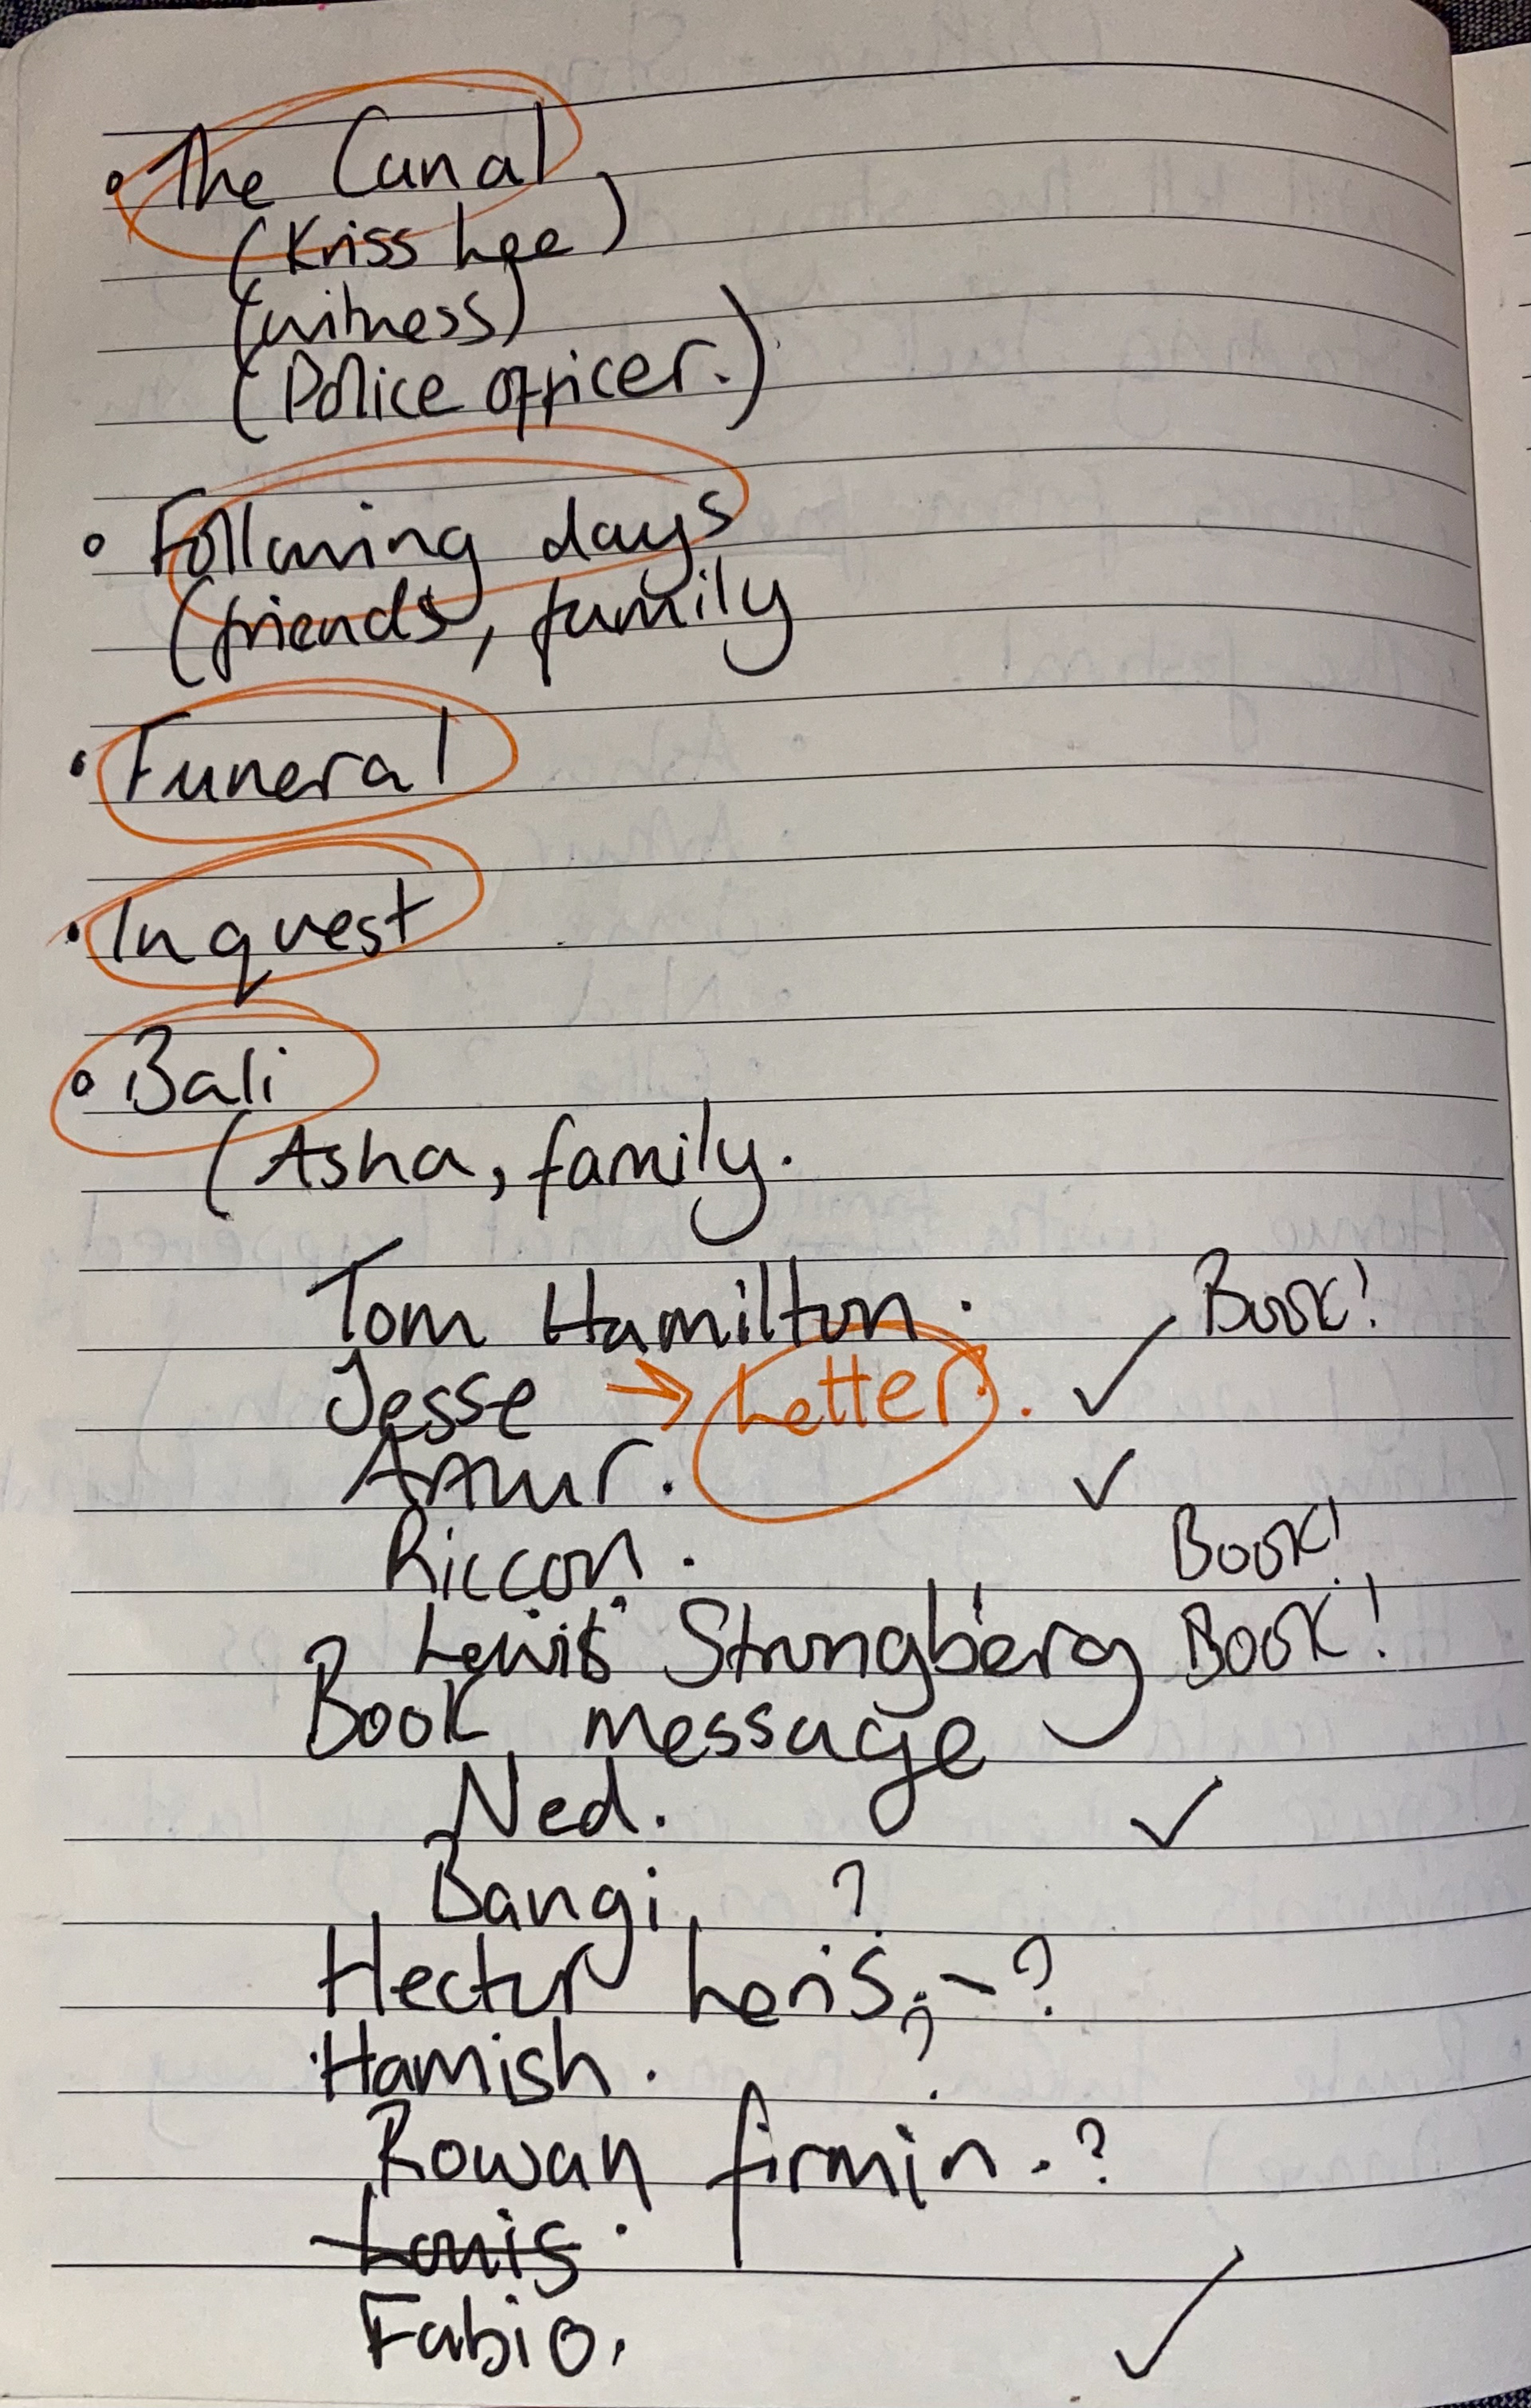 • The Canal
(Kriss Lee)
(witness)
(Police officer.)
• Following days
(friends, family
• Funeral
• Inquest
• Bali
(Asha, family.
Tom Hamilton. Book!
Jesse → Letter. ✓
Arthur. ✓
Riccon. Book!
Lewis Strongberg Book!
Book message
Ned. ✓
Bangi ?
Hector - ?
Hamish. ?
Rowan firmin. ?
Louis.
Fabio. ✓